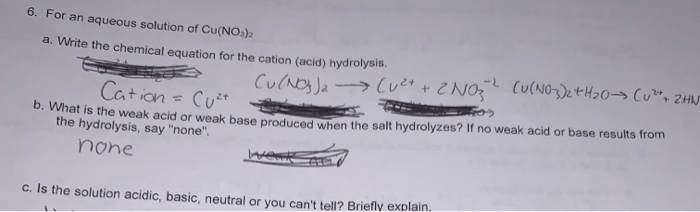 6. For an aqueous solution of Cu(NO₃)₂
a. Write the chemical equation for the cation (acid) hydrolysis.
Cu(NO₃)₂ → Cu²⁺ + 2NO₃⁻² Cu(NO₃)₂+H₂O→ Cu²⁺, 2HN
Cation = Cu²⁺
b. What is the weak acid or weak base produced when the salt hydrolyzes? If no weak acid or base results from
the hydrolysis, say "none".
none
c. Is the solution acidic, basic, neutral or you can't tell? Briefly explain.